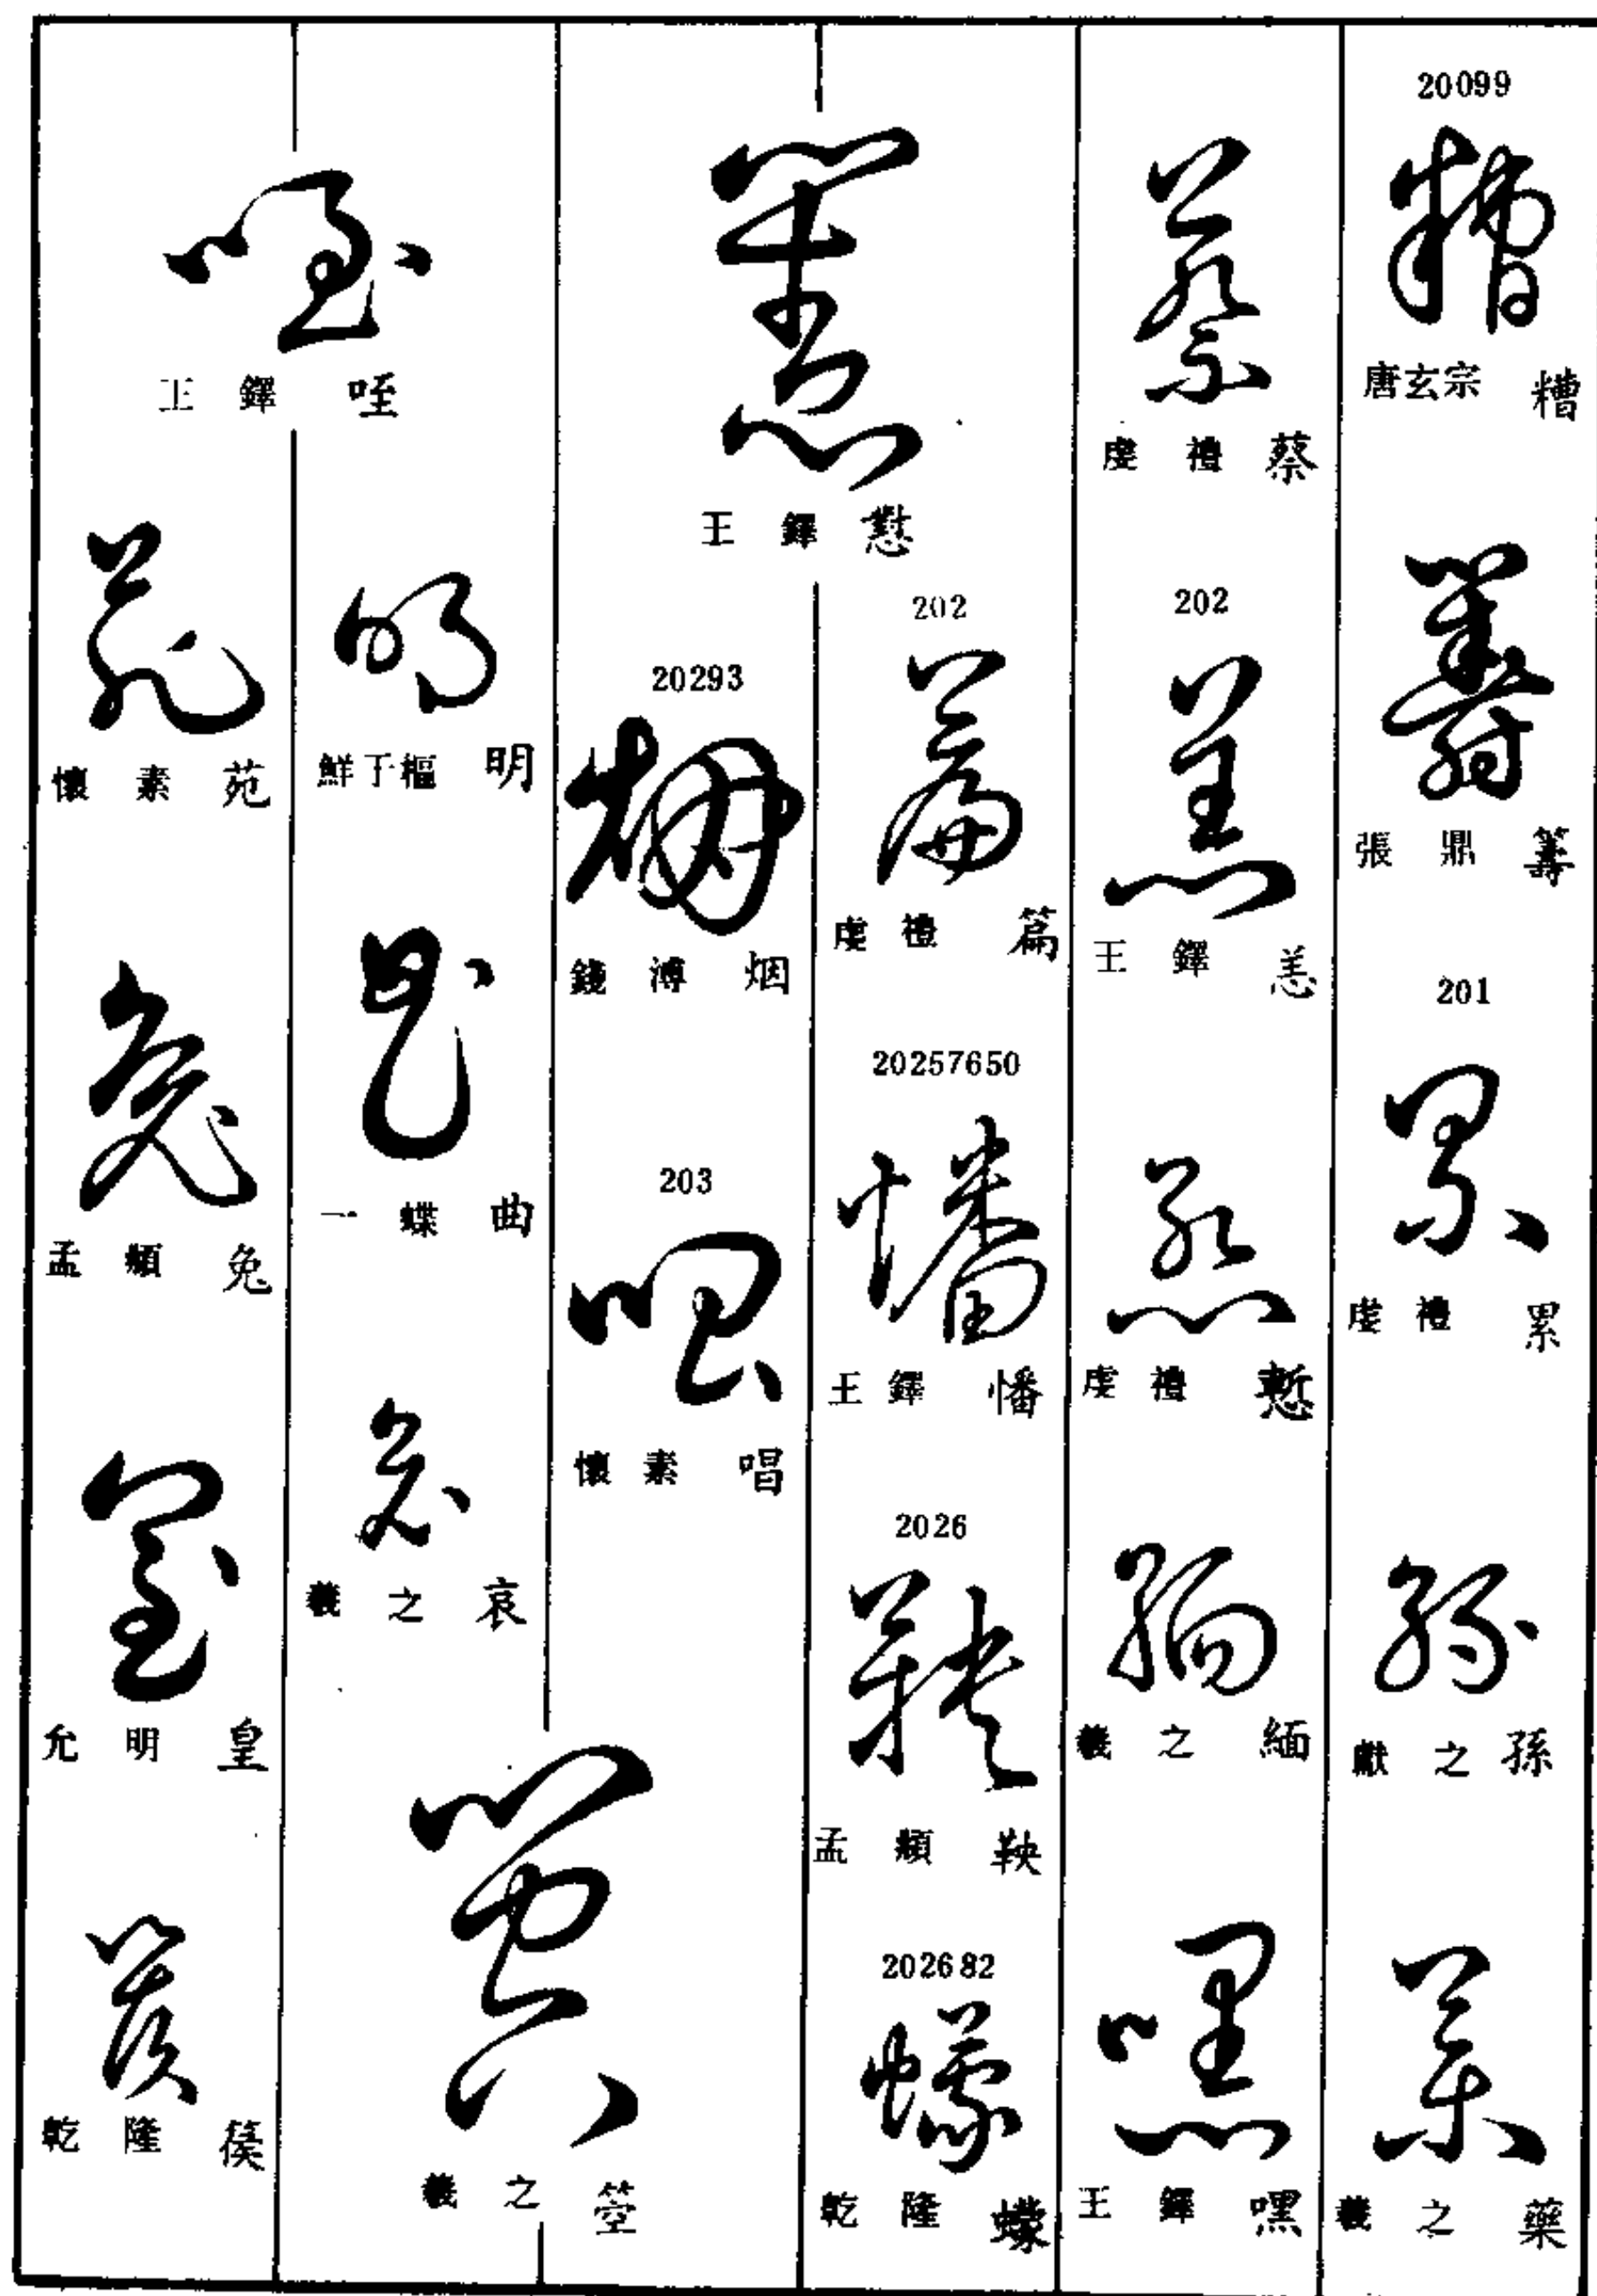 20099
唐玄宗 糟
張鼎 籌
201
虔禮 累
獻之 孫
羲之 藥
虔禮 蔡
202
王鐸 恙
虔禮 慙
羲之 緬
王鐸 嘿
王鐸 懟
202
虔禮 篇
20257650
王鐸 幡
2026
孟頫 鞅
202682
乾隆 蠓
20293
錢溥 烟
203
懷素 唱
王鐸 咥
鮮于樞 明
一蝶 曲
羲之 哀
羲之 箜
懷素 苑
孟頫 兔
允明 皇
乾隆